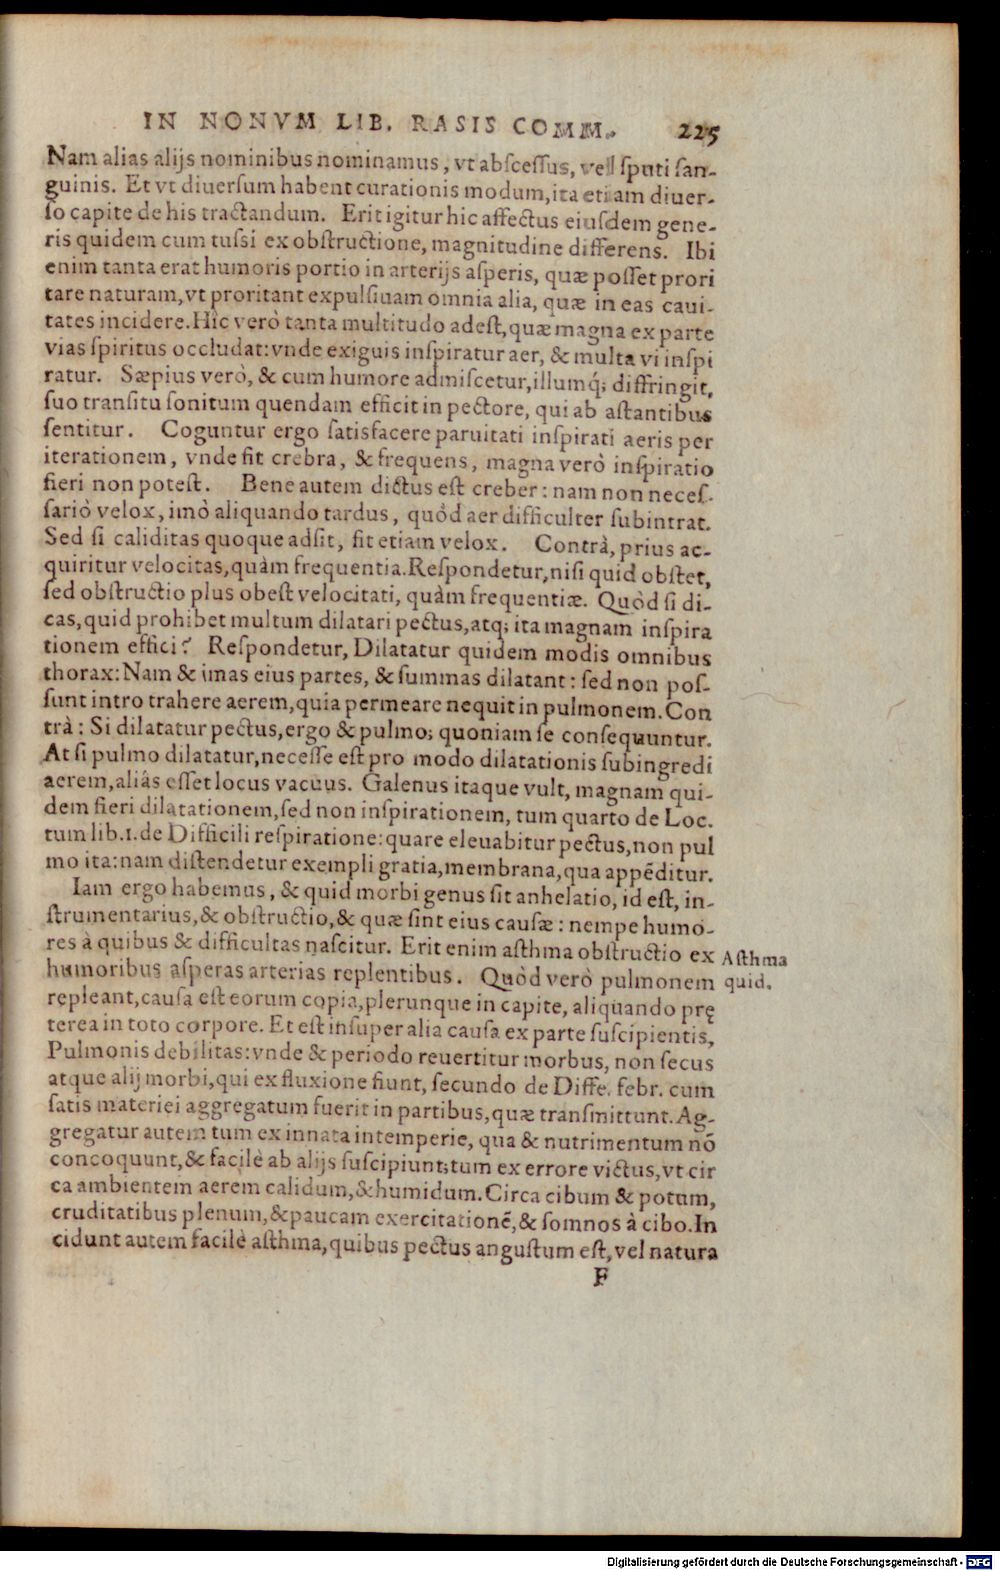 IN NONVM LIB. RASIS COMM. 225
Nam alias alijs nominibus nominamus, vt abscessus, vel sputi san-
guinis. Et vt diuersum habent curationis modum, ita etiam diuer-
so capite de his tractandum. Erit igitur hic affectus eiusdem gene-
ris quidem cum tussi ex obstructione, magnitudine differens. Ibi
enim tanta erat humoris portio in arterijs asperis, quæ posset prori
tare naturam, vt proritant expulsiuam omnia alia, quæ in eas caui-
tates incidere. Hîc verò tanta multitudo adest, quæ magna ex parte
vias spiritus occludat: vnde exiguis inspiratur aer, & multa vi inspi
ratur. Sæpius verò, & cum humore admiscetur, illumq́; diffringit,
suo transitu sonitum quendam efficit in pectore, qui ab astantibus
sentitur. Coguntur ergo satisfacere paruitati inspirati aeris per
iterationem, vnde fit crebra, & frequens, magna verò inspiratio
fieri non potest. Bene autem dictus est creber: nam non neces-
sariò velox, imò aliquando tardus, quòd aer difficulter subintrat.
Sed si caliditas quoque adsit, fit etiam velox. Contrà, prius ac-
quiritur velocitas, quàm frequentia. Respondetur, nisi quid obstet,
sed obstructio plus obest velocitati, quàm frequentiæ. Quòd si di-
cas, quid prohibet multum dilatari pectus, atq; ita magnam inspira
tionem effici? Respondetur, Dilatatur quidem modis omnibus
thorax: Nam & imas eius partes, & summas dilatant: sed non pos-
sunt intro trahere aerem, quia permeare nequit in pulmonem. Con
trà: Si dilatatur pectus, ergo & pulmo; quoniam se consequuntur.
At si pulmo dilatatur, necesse est pro modo dilatationis subingredi
aerem, aliâs esset locus vacuus. Galenus itaque vult, magnam qui-
dem fieri dilatationem, sed non inspirationem, tum quarto de Loc.
tum lib. 1. de Difficili respiratione: quare eleuabitur pectus, non pul
mo ita: nam distendetur exempli gratia, membrana, qua appẽditur.
Iam ergo habemus, & quid morbi genus sit anhelatio, id est, in-
strumentarius, & obstructio, & quæ sint eius causæ: nempe humo-
res à quibus & difficultas nascitur. Erit enim asthma obstructio ex
Asthma
humoribus asperas arterias replentibus. Quòd verò pulmonem
quid.
repleant, causa est eorum copia, plerunque in capite, aliquando prę
terea in toto corpore. Et est insuper alia causa ex parte suscipientis,
Pulmonis debilitas: vnde & periodo reuertitur morbus, non secus
atque alij morbi, qui ex fluxione fiunt, secundo de Diffe. febr. cum
satis materiei aggregatum fuerit in partibus, quæ transmittunt. Ag-
gregatur autem tum ex innata intemperie, qua & nutrimentum nõ
concoquunt, & facilè ab alijs suscipiunt; tum ex errore victus, vt cir
ca ambientem aerem calidum, & humidum. Circa cibum & potum,
cruditatibus plenum, & paucam exercitationẽ, & somnos à cibo. In
cidunt autem facilè asthma, quibus pectus angustum est, vel natura
F
Digitalisierung gefördert durch die Deutsche Forschungsgemeinschaft - DFG